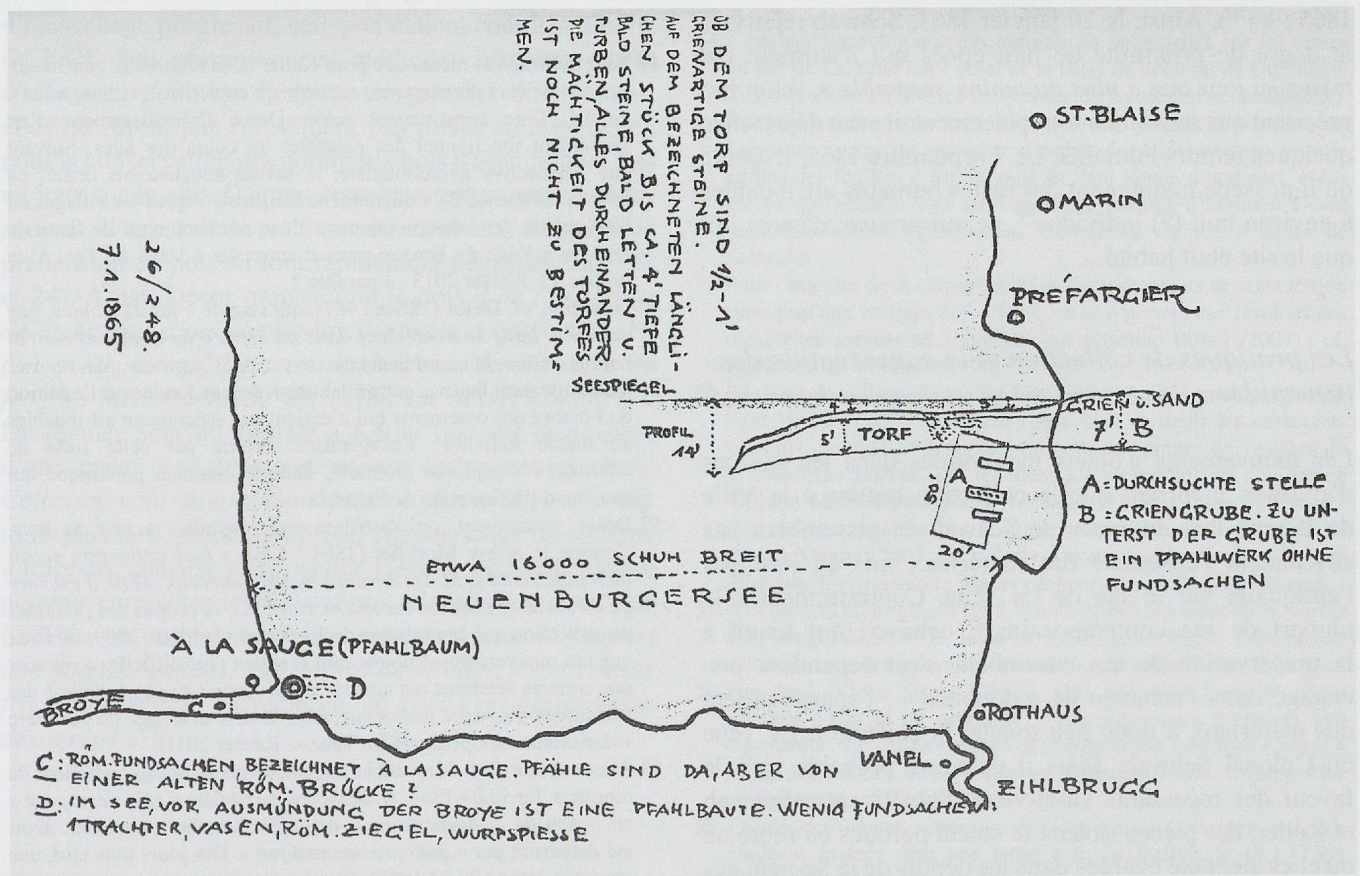 OB DEM TORF SIND ½-1'
GRIENARTIGE STEINE.
AUF DEM BEZEICHNETEN LÄNGLI-
CHEN STÜCK BIS CA. 4' TIEFE
BALD STEINE, BALD LETTEN BALD
TURBE/ALLES DURCHEINANDER.
DIE MÄHTICKEIT DES TORFES
IST NOCH NICHT ZU BESTIM-
MEN.
26/248
71 1865
ST. BLAISE
MARIN
PRÉFARGIER
SEESPIEGEL
GRIEN U. SAND
PROFIL
14'
5'
TORF
7'
B
A
80'
20'
A: DURCHSUCHTE STELLE
B: GRIENGRUBE. ZU UN-
TERST DER GRUBE IST
EIN PFAHLWERK OHNE
FUNDSACHEN
ETWA 16'000 SCHUH BREIT
NEUENBURGERSEE
À LA SAUGE (PFAHLBAUM)
D
BROYE
C
ROTHAUS
VANEL
ZIHLBRUGG
C: RÖM. FUNDSACHEN, BEZEICHNET A LA SAUGE. PFÄHLE SIND DA, ABER VON
EINER ALTEN RÖM. BRÜCKE?
D: IM SEE, VOR AUSMÜNDUNG DER BROYE IST EINE PFAHLBAUTE. WENIG FUNDSACHEN:
1 TRACHTER, VASEN, RÖM. ZIEGEL, WURFSPIESSE